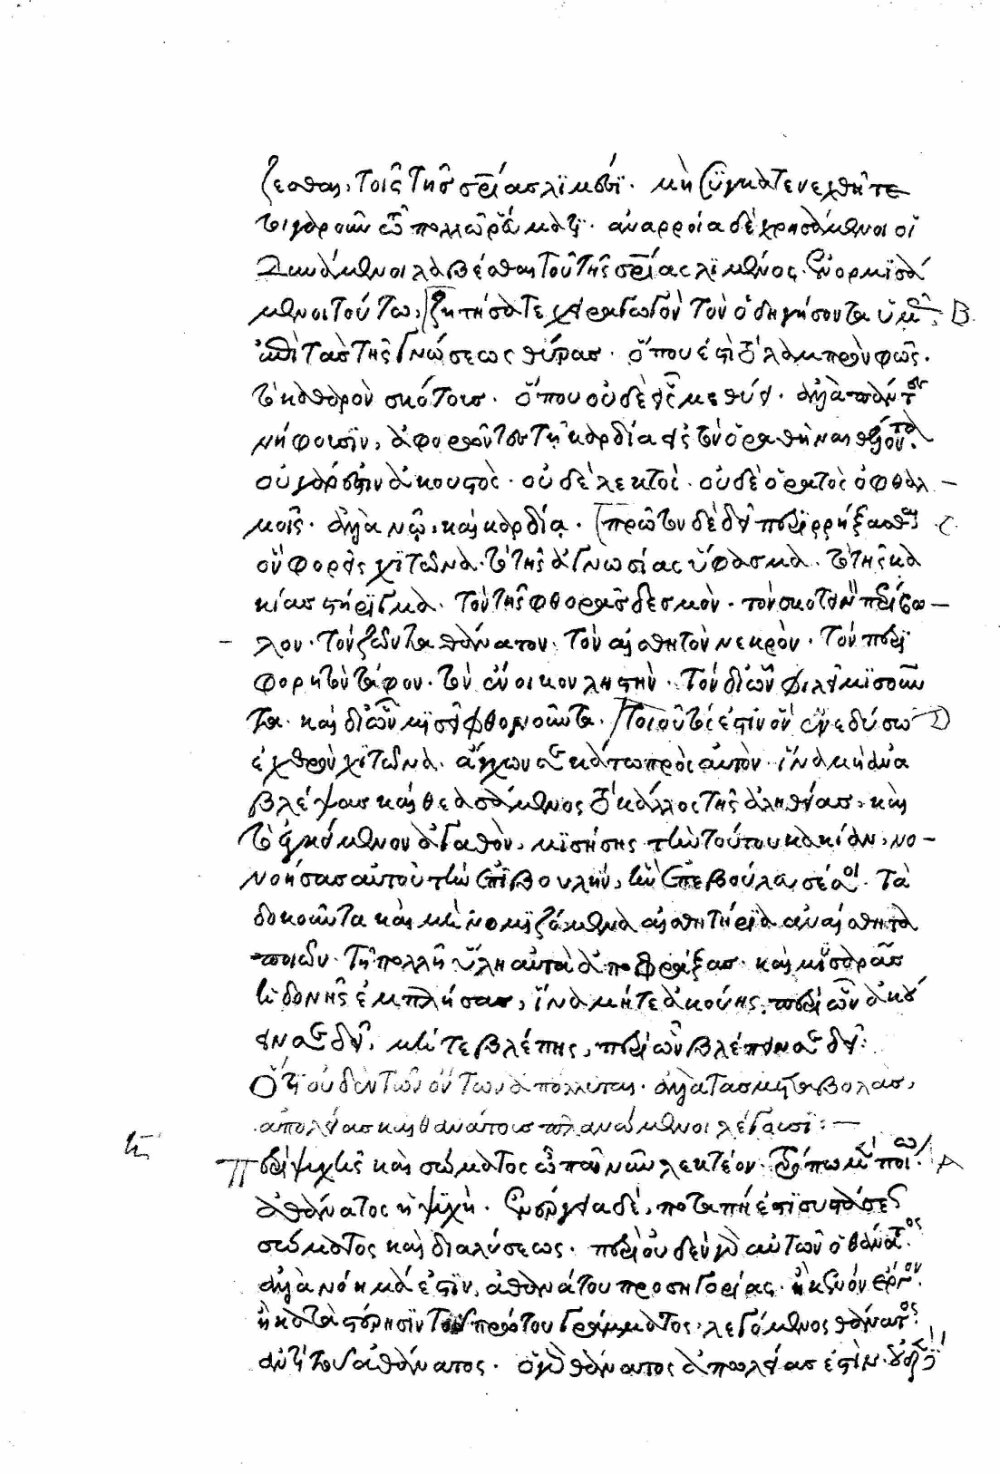 ζεσθαι, τοῖς τῆς σρίας λιμέσι. μὴ συγκατενεχθῆτε
τοιγαροῦν τῷ πολλῷ ῥεύματι. ἀναρροία δὲ χρησάμενοι οἱ
δυνάμενοι λαβέσθαι τοῦ τῆς σρίας λιμένος. ἐνορμισά
μενοι τούτω, ζητήσατε χειραγωγὸν τὸν ὁδηγήσοντα ὑμᾶς B
ἐπὶ τὰς τῆς γνώσεως θύρας. ὅπου ἐστὶ τὸ λαμπρὸν φῶς.
τὸ καθαρὸν σκότους. ὅπου οὐδὲ εἷς μεθύει. ἀλλὰ πάντες
νήφουσιν, ἀφορῶντες τῇ καρδίᾳ εἰς τὸν ὁραθῆναι θέλοντα.
οὐ γάρ ἐστιν ἀκουστὸς. οὐδὲ λεκτὸς. οὐδὲ ὁρατὸς ὀφθαλ
μοῖς. ἀλλὰ νῷ, καὶ καρδίᾳ. πρῶτον δὲ δεῖ περιρρήξασθαι C
ὃν φορεῖς χιτῶνα. τὸ τῆς ἀγνωσίας ὕφασμα. τὸ τῆς κα
κίας στήριγμα. τὸν τῆς φθορᾶς δεσμὸν. τὸν σκοτεινὸν περίβο
λον. τὸν ζῶντα θάνατον. τὸν αἰσθητὸν νεκρὸν. τὸν περι
φόρητον τάφον. τὸν ἔνοικον ληστὴν. τὸν δι' ὧν φιλεῖ μισοῦν
τα. καὶ δι' ὧν μισεῖ φθονοῦντα. τοιοῦτός ἐστιν ὃν ἐνεδύσω D
ἐχθρὸν χιτῶνα. ἄγχων σε κάτω πρὸς αὐτὸν. ἵνα μὴ ἀνα
βλέψας καὶ θεασάμενος τὸ κάλλος τῆς ἀληθείας, καὶ
τὸ ἐγκείμενον ἀγαθὸν, μισήσης τὴν τούτου κακίαν, νο
νοήσας αὐτοῦ τὴν ἐπιβουλήν, ἣν ἐπεβούλευσέ σοι. τὰ
δοκοῦντα καὶ μὴ νομιζόμενα αἰσθητήρια ἀναίσθητα
ποιῶν. τῇ πολλῇ ὕλῃ αὐτὰ ἀποφράξας. καὶ μυσαρᾶς
ἡδονῆς ἐμπλήσας, ἵνα μήτε ἀκούης, περὶ ὧν ἀκού
ειν σε δεῖ, μήτε βλέπης, περὶ ὧν βλέπειν σε δεῖ:
Ὅτι οὐδὲν τῶν ὄντων ἀπόλλυται. ἀλλὰ τὰς μεταβολὰς,
ἀπολείας καὶ θανάτους πλανώμενοι λέγουσι: —
Περὶ ψυχῆς καὶ σώματος ὦ παῖ νῦν λεκτέον. τρόπω μὲν ποίω A
ἀθάνατος ἡ ψυχὴ. ἐνέργεια δὲ, ποταπή ἐστι συστάσεως
σώματος καὶ διαλύσεως. περὶ οὐδὲν γὰρ αὐτῶν ὁ θάνατος.
ἀλλὰ νόημά ἐστιν, ἀθανάτου προσηγορίας, ἢ κενὸν ἔργον.
ἢ κατὰ στέρησιν τοῦ πρώτου γράμματος, λεγόμενος θάνατος
ἀντὶ τοῦ ἀθάνατος. ὁ γὰρ θάνατος ἀπωλείας ἐστὶν.